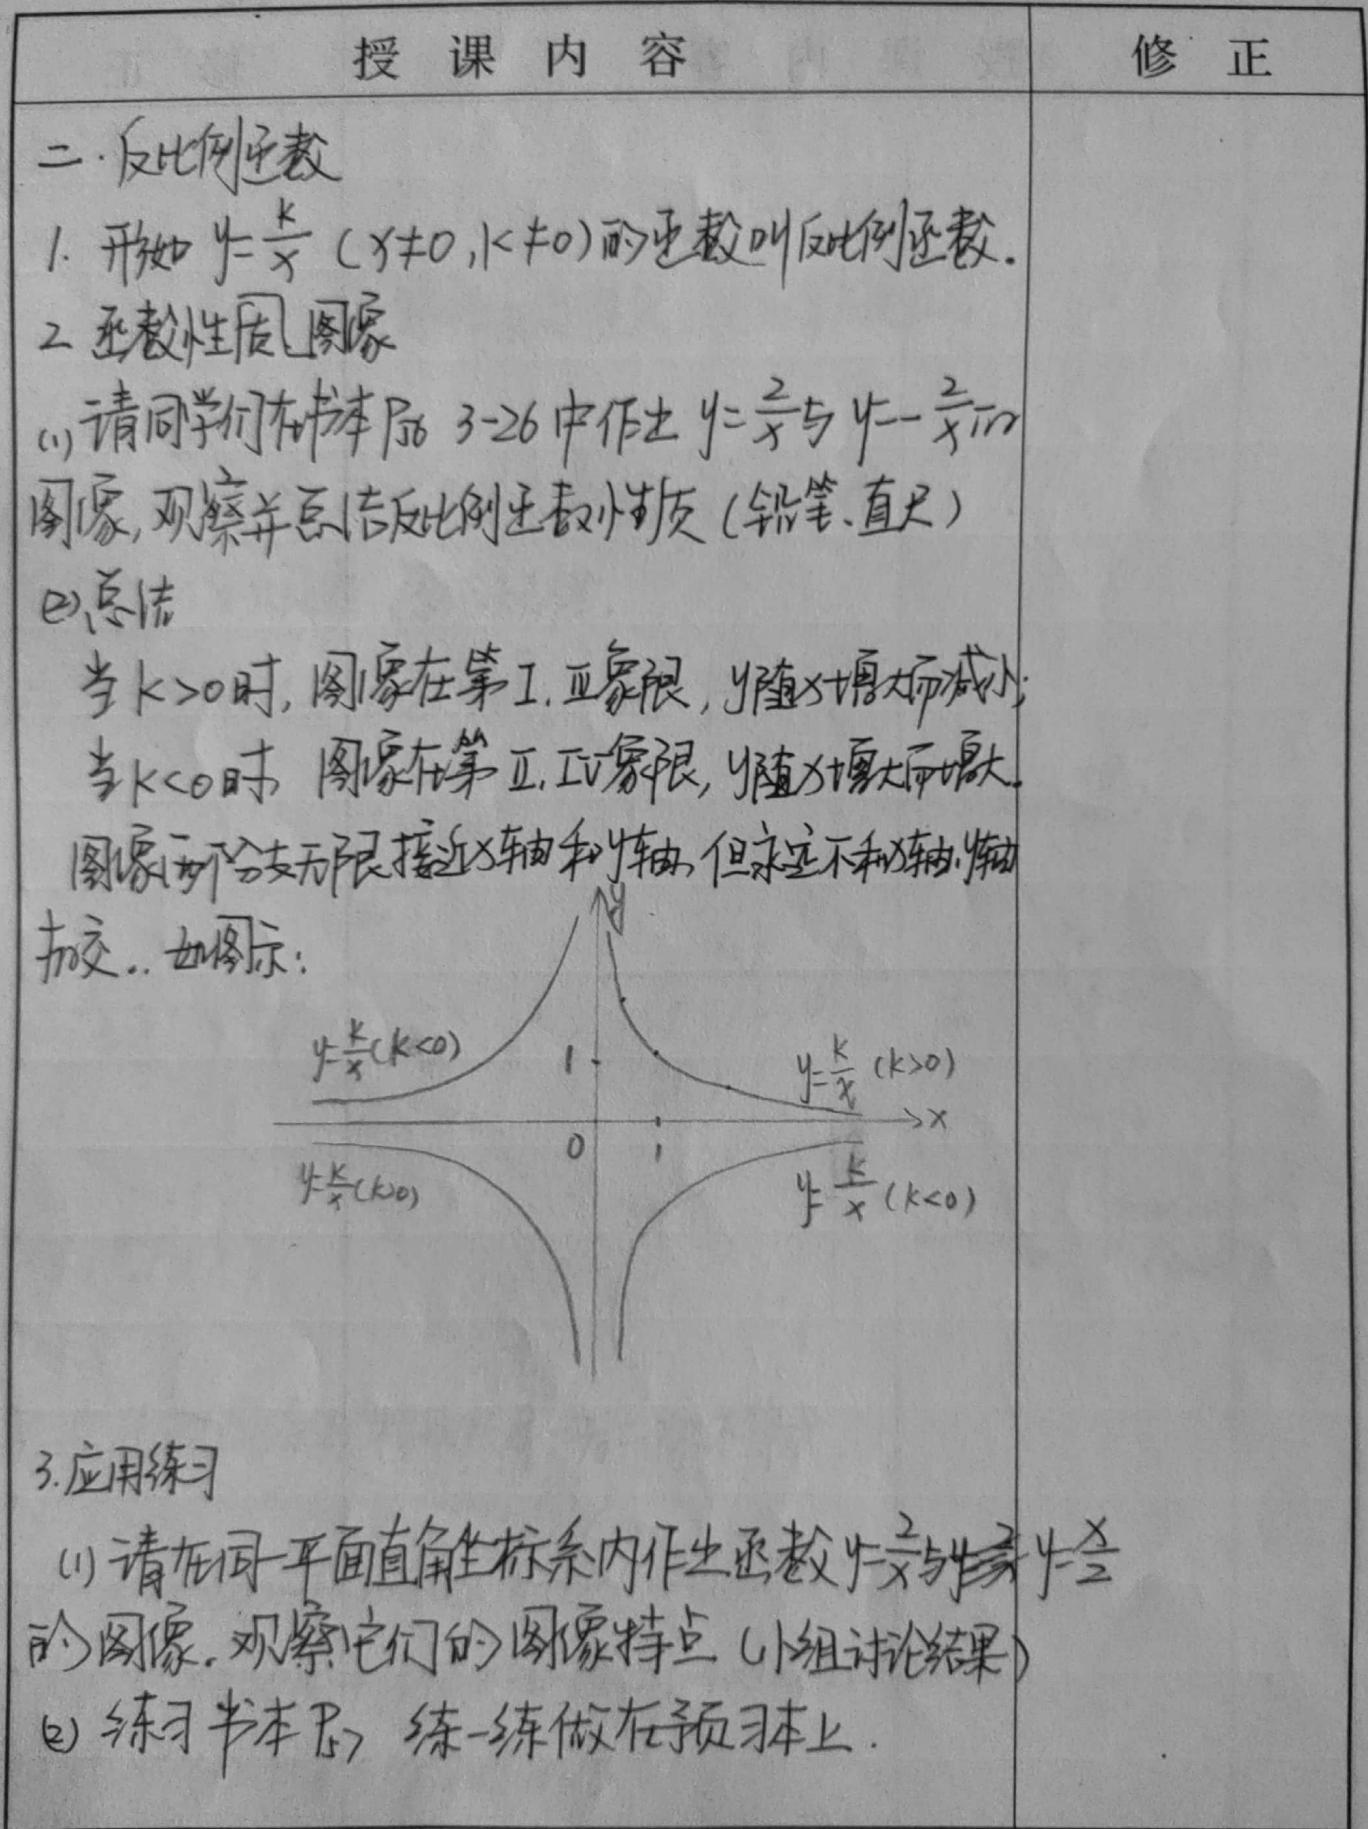 授课内容 修正
二.反比例函数
1. 形如 y=k/x (x≠0,k≠0)的函数叫反比例函数.
2 函数性质 图像
(1)请同学们在书本P56 3-26中作出 y=2/x与 y=-2/x的
图像,观察并总结反比例函数性质(铅笔、直尺)
(2)总结
当k>0时,图像在第I.III象限,y随x增大而减小;
当k<0时 图像在第II.IV象限,y随x增大而增大.
图像两个分支无限接近x轴和y轴,但永远不和x轴.y轴
相交.. 如图示:
y
y=k/x(k<0) 1 y=k/x (k>0)
x
0 1
y=k/x(k>0) y=k/x (k<0)
3.应用练习
(1)请在同一平面直角坐标系内作出函数y=2/x与 y=x/2
的图像.观察它们的图像特点(小组讨论结果)
(2)练习书本P57 练一练做在预习本上.